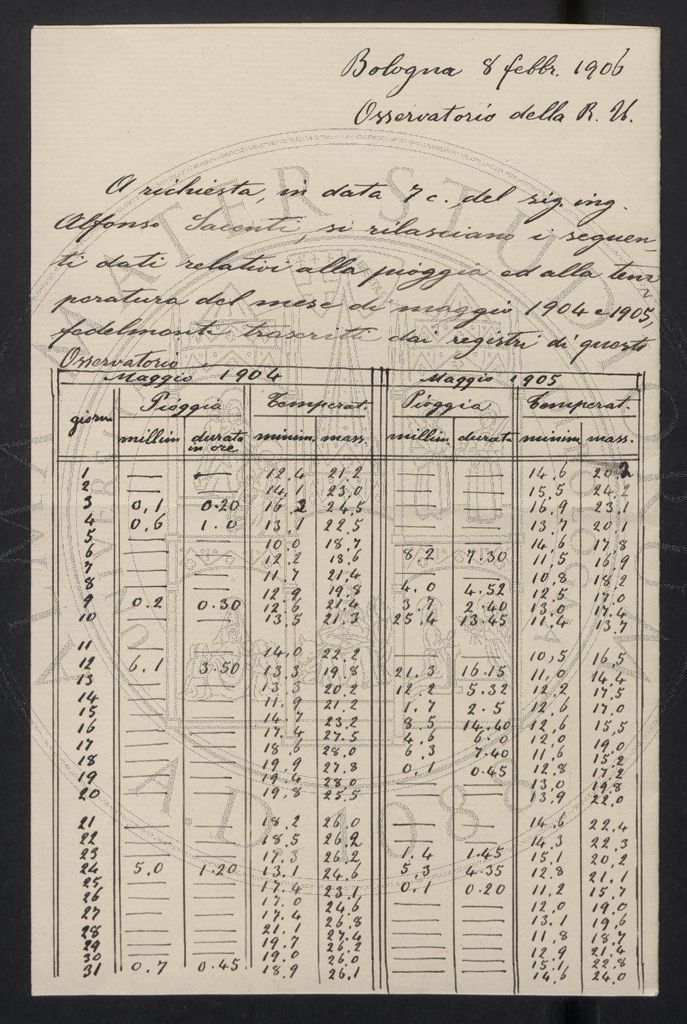 Bologna 8 febbr. 1906
Osservatorio della R. U.
A richiesta, in data 7 c. del sig. ing.
Alfonso Sacenti, si rilasciano i seguen-
ti dati relativi alla pioggia ed alla tem-
peratura del mese di maggio 1904 e 1905,
fedelmente trascritti dai registri di questo
Osservatorio
Maggio 1904 Maggio 1905
Pioggia Temperat. Pioggia Temperat.
giorni millim durata in ore minim. mass. millim durata minim mass.
1 — — 12.4 21.2 — — 14.6 20.2
2 — — 14.1 23.0 — — 15.5 24.2
3 0,1 0.20 16.2 24.5 — — 16.9 23.1
4 0,6 1.0 13.1 22.5 — — 13.7 20.1
5 — — 10.0 18.7 — — 14.6 17.8
6 — — 12.2 18.6 8.2 7.30 11.5 16.9
7 — — 11.7 21.4 — — 10.8 18.2
8 — — 12.9 19.8 4.0 4.52 12.5 17.0
9 0.2 0.30 12.6 21.4 3.7 2.40 13.0 17.4
10 — — 13.5 21.3 25.4 13.45 11.4 13.7
11 — — 14.0 22.2 — — 10,5 16,5
12 6,1 3.50 13.3 19.8 21.3 16.15 11,0 14.4
13 — — 13.3 20.2 12.2 5.32 12.2 17,5
14 — — 11.9 21.2 1.7 2.5 12,6 17.0
15 — — 14.7 23.2 8.5 14.40 12,6 15,5
16 — — 17.4 27.5 4.6 6.0 12.0 19.0
17 — — 18.6 28.0 6.3 7.40 11.6 15.2
18 — — 19.9 27.8 0.1 0.45 12.8 17.2
19 — — 19.4 28.0 — — 13.0 19.8
20 — — 19,8 25.5 — — 13.9 22.0
21 — — 18.2 26.0 — — 14.6 22.4
22 — — 18.5 26.2 — — 14.3 22.3
23 — — 17.3 26.2 1.4 1.45 15.1 20,2
24 5,0 1.20 13.1 24.6 5,3 4.35 12.8 21.1
25 — — 17.4 23.1 0.1 0.20 11,2 15.7
26 — — 17.0 24.6 — — 12.0 19.0
27 — — 17.4 26.8 — — 13.1 19.6
28 — — 21.1 27.4 — — 11.8 18.7
29 — — 19.7 26.2 — — 12.9 21.4
30 — — 19.0 26.0 — — 15.1 22.8
31 0.7 0.45 18.9 26.1 — — 14.6 24.0